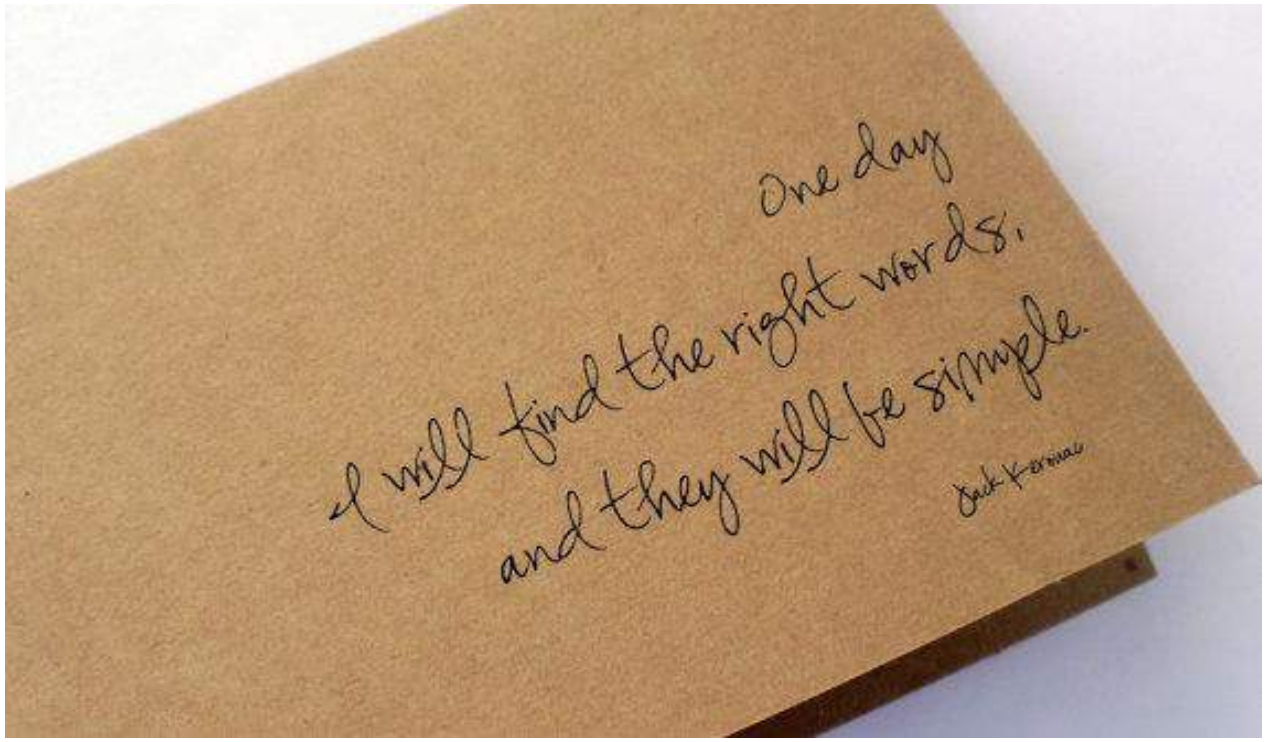 One day
I will find the right words,
and they will be simple.
Jack Kerouac